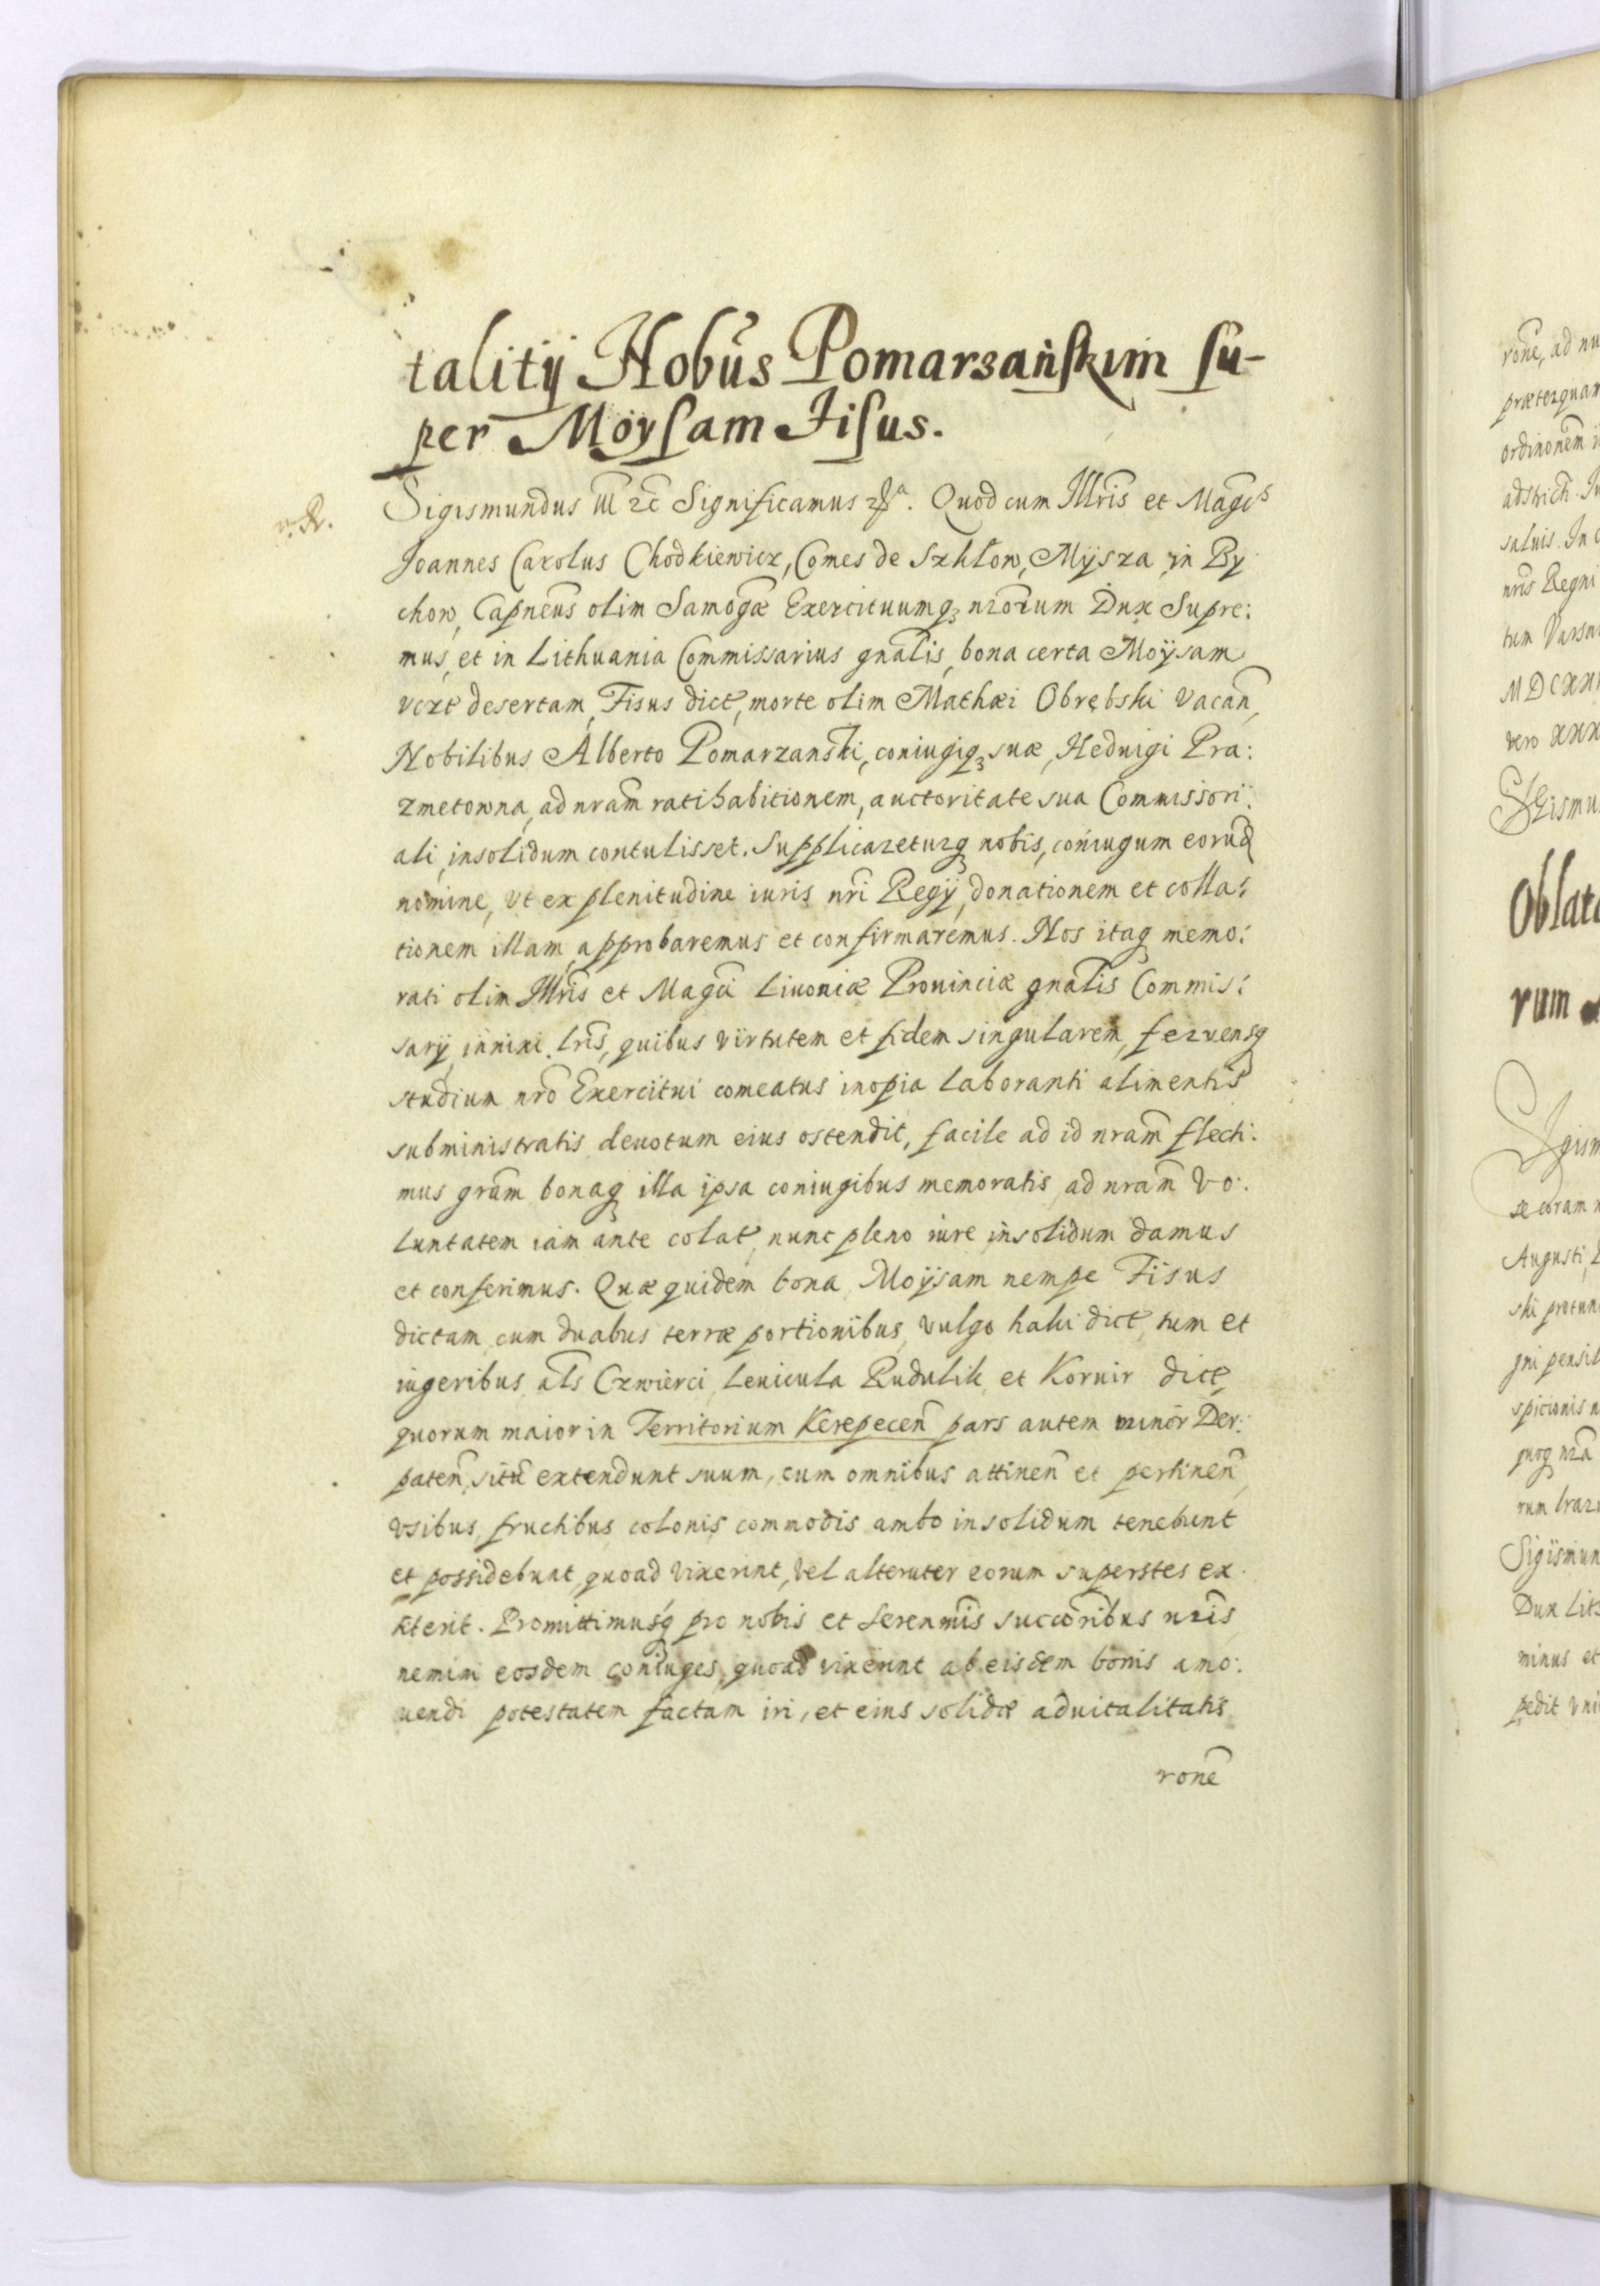 tality Nobūs Pomarsańskim su-
per Moysam Fisus.
Sigismundus III &c Significamus &c. Quod cum Illris et Magcs
Joannes Carolus Chodkiewicz, Comes de Szkłow, Mysza, in By
chow, Capneus olim Samogæ Exercituumq₃ nrorum Dux Supre:
mus, et in Lithuania Commissarius gnalis, bona certa Moÿsam
vert desertam, Fisus dict, morte olim Mathæi Obrębski vacan,
Nobilibus Alberto Pomarzanski, coniugiq₃ suæ, Heduigi Pra:
zmetowna, ad nram ratihabitionem, auctoritate sua Commissori:
ali, insolidum contulisset. Supplicareturq nobis, coniugum eorud
nomine, vt ex plenitudine iuris nri Regÿ, donationem et colla:
tionem illam, approbaremus et confirmaremus. Nos itaq memo:
rati olim Illris et Magci Liuoniæ Prouinciæ gnalis Commis:
sarÿ innixi Lris, quibus virtutem et fidem singularem, feruensq
studium nro Exercitui comeatus inopia laboranti alimentis
subministratis deuotum eius ostendit, facile ad id nram flecti:
mus gram bonaq illa ipsa coniugibus memoratis ad nram vo:
luntatem iam ante colat, nunc pleno iure insolidum damus
et conferimus. Quæ quidem bona Moÿsam nempe Fisus
dictam cum duabus terræ portionibus, vulgo haki dict, tum et
iugeribus als Czwierci Leuicula Rudulik et Koruir dict,
quorum maior in Territorium Kerepecen pars autem minor Der:
paten, situ extendunt suum, cum omnibus attinen et pertinen,
vsibus, fructibus colonis commodis ambo insolidum tenebunt
et possidebunt, quoad vixerint, vel alteruter eorum superstes ex
titerit. Promittimusq pro nobis et Serenmis succoribus nris
nemini eosdem coniuges, quoad vixerint ab eisdem bonis amo:
uendi potestatem factam iri, et eius solidæ aduitalitatis
rone
rone, ad nu
præterquam
ordinonem
adstrict. Ju
saluis. In
nris Regni
tum Varsa
MDCXX
vero XXX
Sigismu
Oblat
rum
Sigism
se coram
Augusti
ski
gni
spicionis
quoq nra
rum
Sigismun
Dux Lit
minus et
pedit